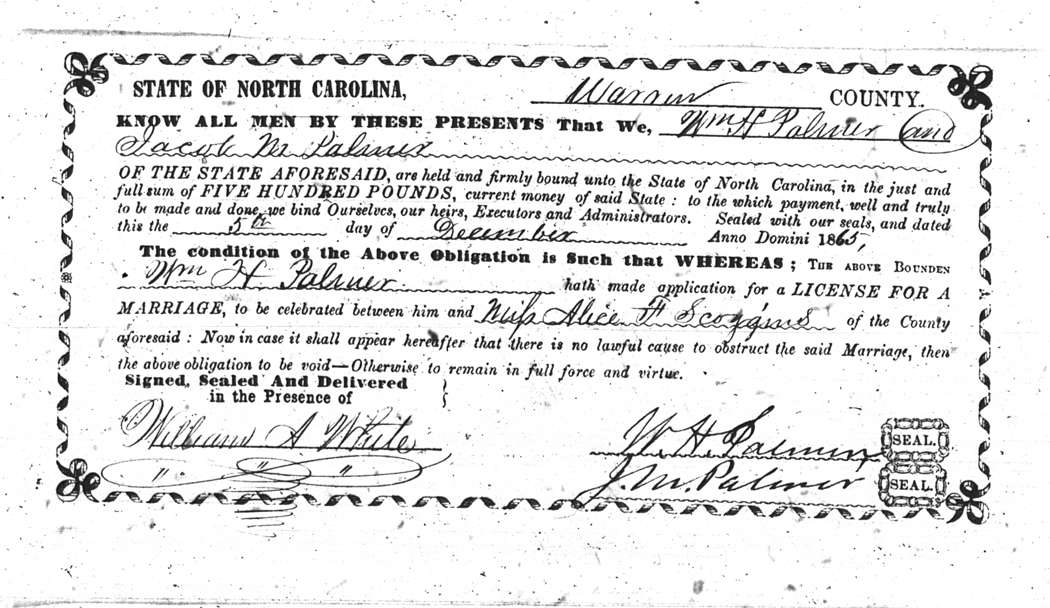 STATE OF NORTH CAROLINA, Warren COUNTY.
KNOW ALL MEN BY THESE PRESENTS That We, Wm H Palmer and
Jacob M Palmer
OF THE STATE AFORESAID, are held and firmly bound unto the State of North Carolina, in the just and
full sum of FIVE HUNDRED POUNDS, current money of said State : to the which payment, well and truly
to be made and done, we bind Ourselves, our heirs, Executors and Administrators. Sealed with our seals, and dated
this the 5th day of December Anno Domini 1865,
The condition of the Above Obligation is Such that WHEREAS ; THE ABOVE BOUNDEN
Wm H Palmer hath made application for a LICENSE FOR A
MARRIAGE, to be celebrated between him and Miss Alice F Scoggins of the County
aforesaid : Now in case it shall appear hereafter that there is no lawful cause to obstruct the said Marriage, then
the above obligation to be void—Otherwise to remain in full force and virtue.
Signed, Sealed And Delivered
in the Presence of
William A White
W H Palmer SEAL.
J. M. Palmer SEAL.